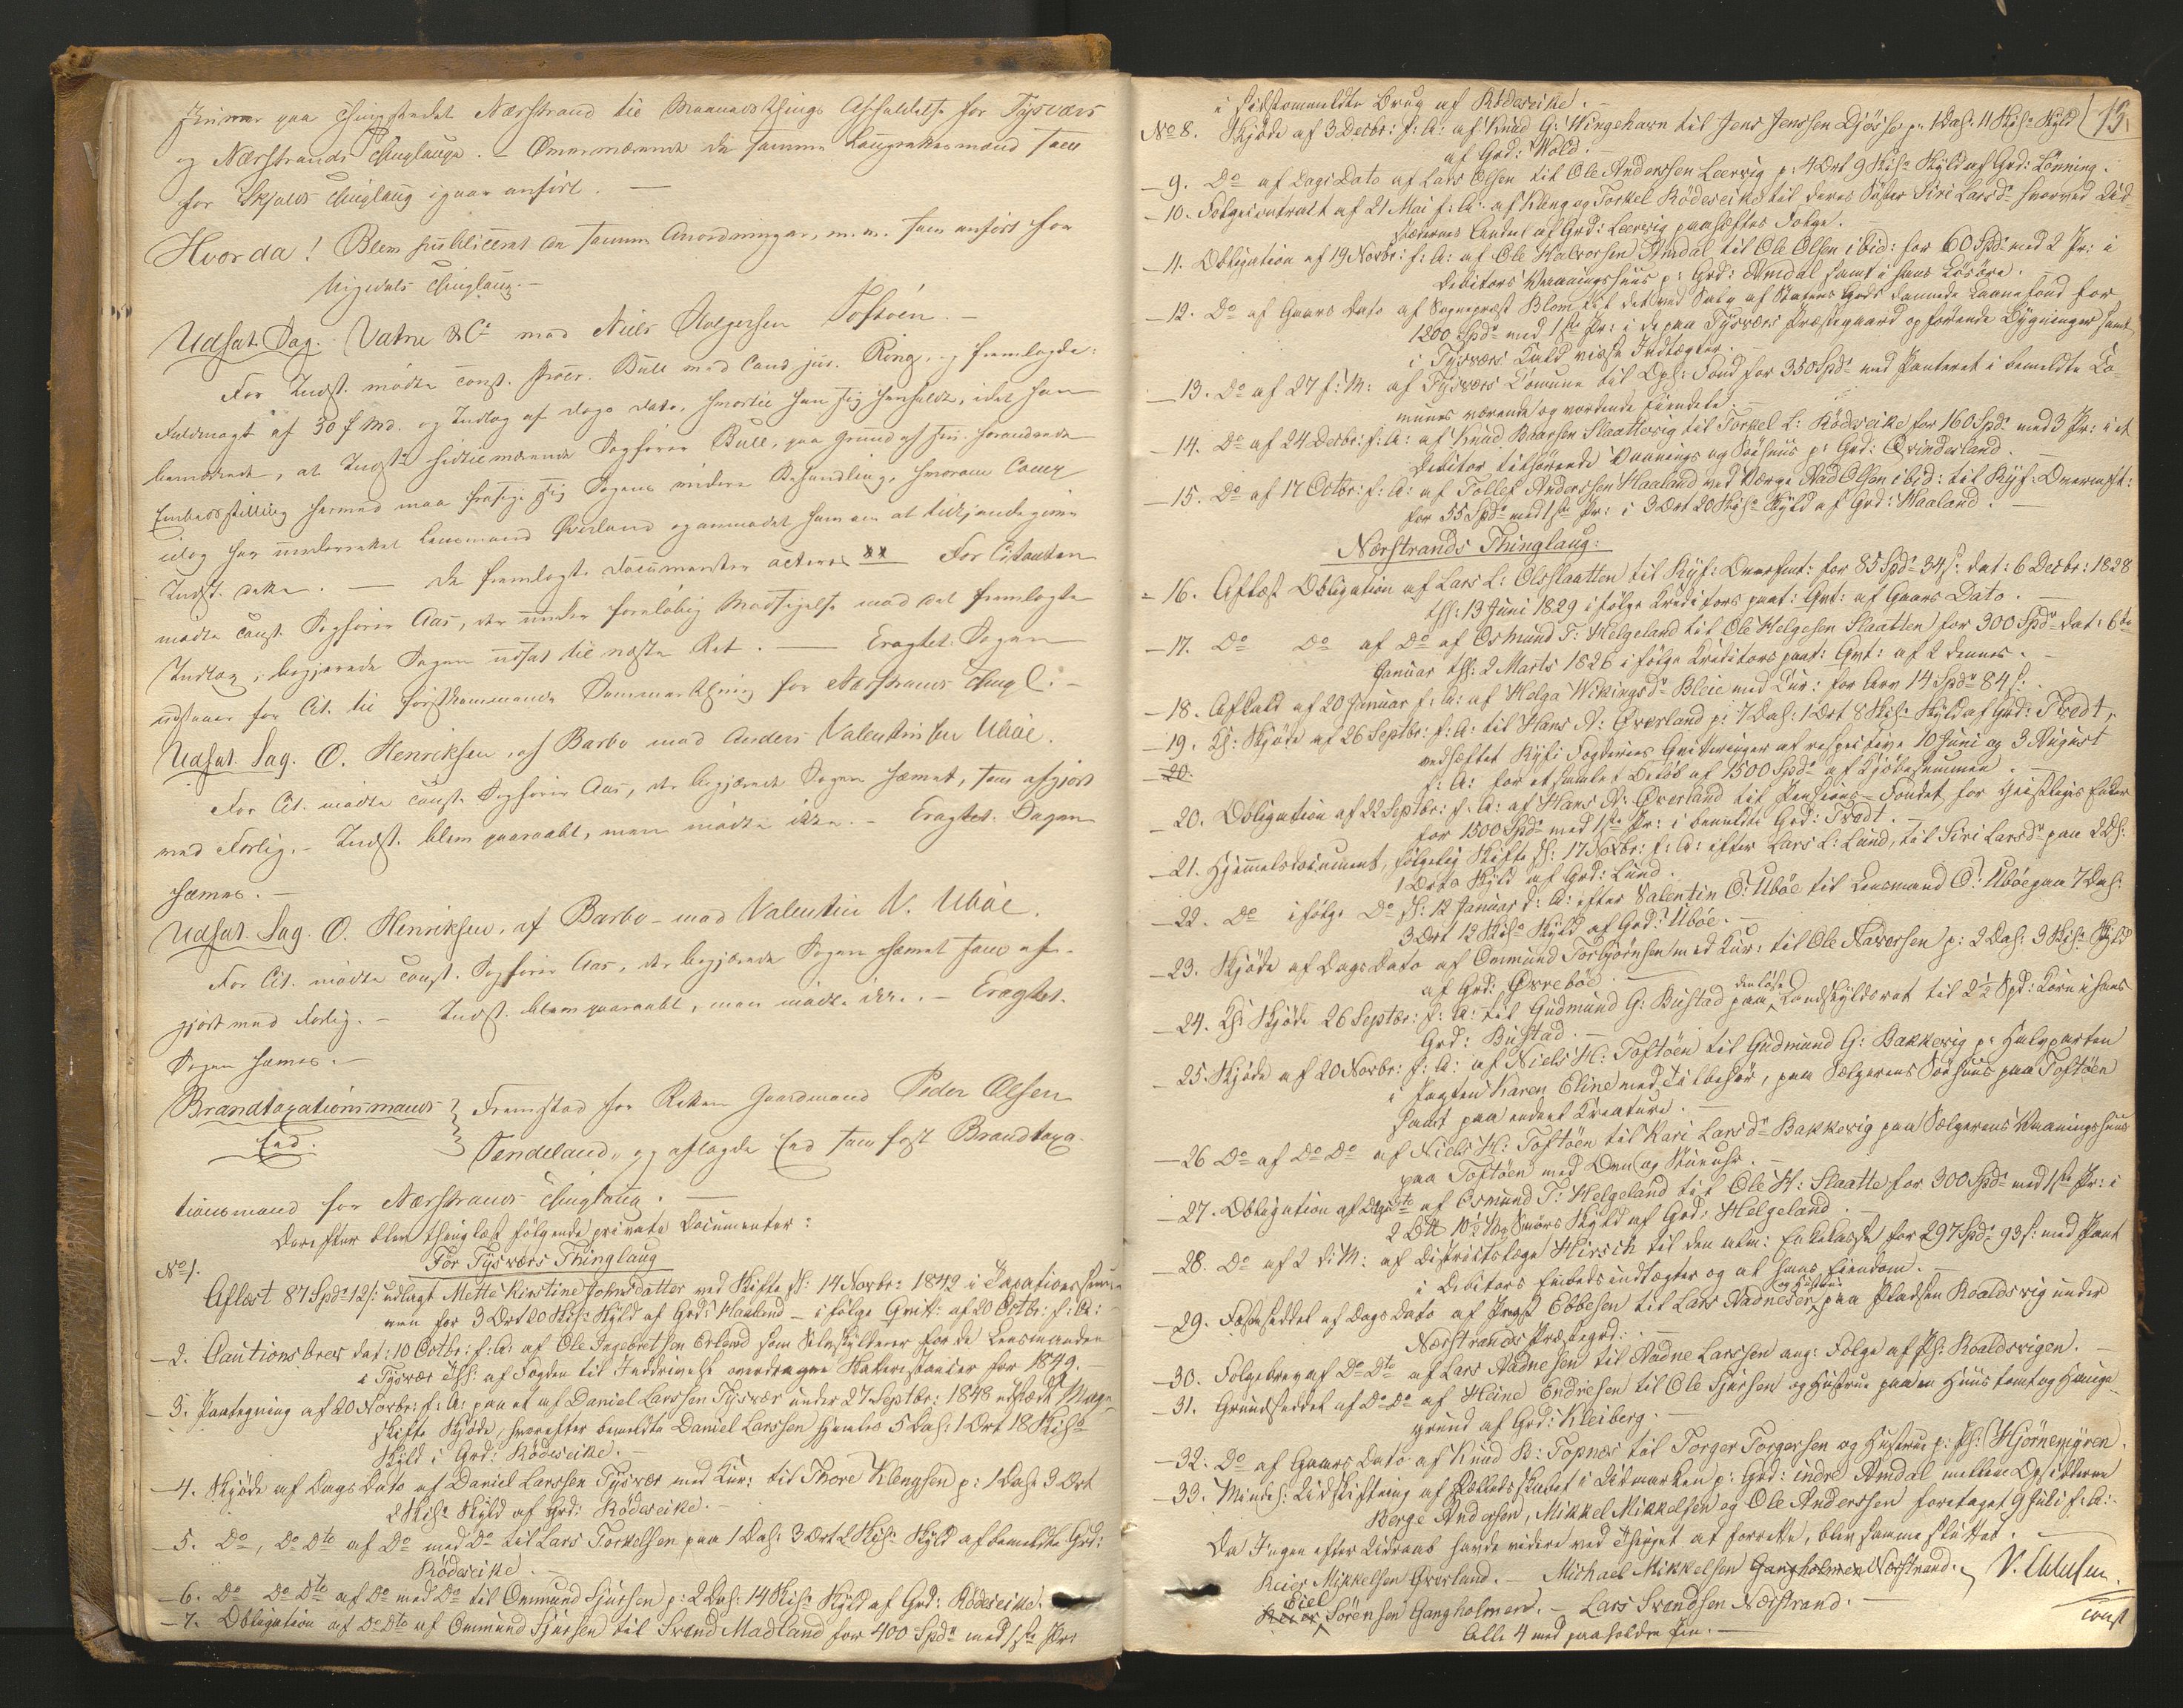 paa Thingstedet Nærstrand til Maanedsthings Afholdelse for Tysværs
og Nærstrands Thinglauge. – Overværende de samme Laugrettesmænd som
for Skjolds Thinglaug igaar anført. –
Hvorda! Blev publiceret de samme Anordninger, m.m. som anført for
Vigedals Thinglaug. –
Udsat Sag. Vatne & Cº mod Niels Holgersen Toftøen. –
For Indst. mødte const. Procr. Bull med Cand. jur. Ring, og fremlagde:
Fuldmagt af 30 f. Md. og Indlæg af Dags Dato, hvortil han sig henholdt, idet han
bemærkede, at Indst:s hidtilværende Sagfører Bull, paa Grund af sin forandrede
Embedsstilling hermed maa frasige sig Sagens videre Behandling, hvorom Comp.
idag har underrettet Lensmand Øverland og anmodet ham om at tilkjendegive
Indst. dette. – De fremlagte Documenter acteres – For Citanten
mødte const. Sagfører Aas, der under foreløbig Modsigelse mod det fremlagte
Indlæg, begjærede Sagen udsat til næste Ret. – Eragtet: Sagen
udstaaer for Cit. til førstkommende Sommerthing for Nærstrands Thingl. –
Udsat Sag. O. Henriksen, af Barbo mod Anders Valentinsen Ubøe.
For Cit. mødte const. Sagfører Aas, der begjærede Sagen hævet, som afgjort
ved Forlig. – Indst. blev paaraabt, men mødte ikke. – Eragtet: Sagen
hæves. –
Udsat Sag. O. Henriksen, af Barbo – mod Valentin V. Ubøe.
For Cit. mødte const. Sagfører Aas, der begjærede Sagen hævet som af-
gjort ved Forlig. – Indst. blev paaraabt, men mødte ikke. – Eragtet.
Sagen hæves. –
Brandtaxationsmands Fremstod for Retten Gaardmand Peder Olsen
Eed. Søndeland, og aflagde Eed som fast Brandtaxa-
tionsmand for Nærstrands Thinglaug. –
Derefter blev thinglæst følgende private Documenter:
For Tysværs Thinglaug
Nº 1. Aflæst 87 Spd 12 s: udlagt Mette Kirstine Johnsdatter ved Skifte sl: 14 Novbr: 1842 i Taxationssum-
men for 3 Ort 20 Skis. Skyld af Grd: Haaland – ifølge Qvitt: af 20 Octbr: f: A: –
– 2. Cautionsbrev dat: 10 Octbr: f: A: af Ole Ingebretsen Erland som Selvskyldner for de Lensmanden
i Tysvær af Fogden til Inddrivelse overdragne Skatterestancer for 1849.
– 3. Paategning af 20 Novbr: f: A: paa et af Daniel Larssen Tysvær under 27 Septbr: 1848 udstædt Mage-
skifte Skjøde, hvorefter bemeldte Daniel Larssen hjemles 5 Dah: 1 Ort 18 Skis.
Skyld i Grd: Rødseike. –
– 4. Skjøde af Dags Dato af Daniel Larssen Tysvær med Kur: til Thore Klengsen p: 1 Dah: 3 Ort
2 Skis. Skyld af Grd: Rødseike. –
– 5. Dº, Dº Dto af Dº med Dº til Lars Torkelsen paa 1 Dah: 3 Ort 2 Skis. Skyld af bemeldte Grd:
Rødseike. –
– 6. Dº Dº Dto af Dº med Dº til Ommund Sjursen p: 2 Dah: 14 Skis. Skyld af Grd: Rødseike.
– 7. Obligation af Dº Dto af Ommund Sjursen til Svend Madland for 400 Spd. med 1ste Pr:
13.
i sidstommeldte Brug af Rødseike. –
Nº 8. Skjøde af 3 Decbr: f: A: af Knud G: Wingehavn til Jens Jenssen Djøsse p: 1 Dah: 11 Skis. Skyld
af Grd: Wold.
– 9. Dº af Dags Dato af Lars Olsen til Ole Anderssen Leervig p: 4 Ort 9 Skis. Skyld af Grd: Lønning.
– 10. Folgecontract af 21 Mai f: A: af Kleng og Torkel Rødseike til deres Søster Siri Larsd. hvorved Ud-
stedernes Andeel af Grd: Leervig paahæftes Folge.
– 11. Obligation af 19 Novbr: f: A: af Ole Halvorsen Amdal til Ole Olsen ibid: for 60 Spd. med 2 Pr: i
Debitors Vaaningshuus p: Grd: Amdal samt i hans Løsøre. –
– 12. Dº af Gaars Dato af Sognepræst Blom til det ved Salg af Statens Gods dannede Laanefond for
1200 Spd. med 1ste Pr: i de paa Tysværs Præstegaard opførende Bygninger samt
i Tysværs Kald visse Indtægter. –
– 13. Dº af 27 f: M: af Tysværs Comune til Opl: Fond for 350 Spd. med Panteret i bemeldte Co-
munes værende og vordende Eiendele. –
– 14. Dº af 24 Decbr: f: A: af Knud Baarsen Slaattevig til Torkel L: Rødseike for 160 Spd. med 3 Pr: i et
Debitor tilhørende Vaanings og Søehuus p: Grd: Qvinderland. –
– 15. Dº af 17 Octbr: f: A: af Tollef Anderssen Haaland ved Værge Aad Olsen ibid: til Ryf: Overinsp:
for 55 Spd. med 1ste Pr: i 3 Ort 20 Skis. Skyld af Grd: Haaland. –
Nærstrands Thinglaug:
– 16. Aflæst Obligation af Lars L: Olsslaatten til Ryf: for 85 Spd. 34 s. dat: 6 Decbr: 1828
thl: 13 Juni 1829 ifølge Kreditors paat: Qvt: af Gaars Dato. –
– 17. Dº Dº af Dº af Osmund T: Helgeland til Ole Helgesen Slaatten for 300 Spd. dat: 6te
Januar thl: 2 Marts 1826 ifølge Kreditors paat: Qvt: af 2 dennes. –
– 18. Afkald af 20 Januar f: A: af Helga Wikingsd. Bleie med Cur: for Arv 14 Spd. 84 s.
– 19. Kgl: Skjøde af 26 Septbr: f: A: til Hans N: Øverland p: 7 Dah: 1 Ort 8 Skis. Skyld af Grd: Tvedt,
vedhæftet Ryfi Fogderies Qvitteringer af respective 10 Juni og 3 August
– 20.
f: A: for et samlet Beløb af 1500 Spd. af Kjøbesummen. –
– 20. Obligation af 22 Septbr: f: A: af Hans N: Øverland til Pensions-Fondet for geistlige Enker
for 1500 Spd. med 1ste Pr: i bemeldte Grd: Tvedt. –
– 21. Hjemmelsdocument, følgelig Skifte sl: 17 Novbr: f: A: efter Lars L: Lund, til Siri Larsd. paa 2 Dh:
1 Orts Skyld af Grd: Lund.
– 22. Dº ifølge Dº sl: 12 Januar d: A: efter Valentin O: Ubøe til Lensmand O: Ubøe paa 7 Dah:
3 Ort 12 Skis. Skyld af Grd: Ubøe. –
– 23. Skjøde af Dags Dato af Ommund Torbjørnsen med Kur: til Ole Aavorsen p: 2 Dah: 3 Skis. Skyld
af Grd: Øvrebøe. –
den løse
– 24. Kgl: Skjøde 26 Septbr: f: A: til Gudmund G: Bustad paa Landskyldsret til 2½ Spd: Korn i hans
Grd: Bustad. –
– 25. Skjøde af 20 Novbr: f: A: af Niels H: Toftøen til Gudmund G: Bakkevig p: Halvparten
i Jagten Karen Eline med Tilbehør, paa Sælgerens Søhuus paa Toftøen
samt paa endeel Kreature. –
– 26 Dº af Dº Dº af Niels H: Toftøen til Kari Larsd. Bakkevig paa Sælgerens Vaaningshuus
paa Toftøen med Ovn og Stueuhr. –
– 27. Obligation af Dags Dto af Osmund T: Helgeland til Ole H: Slaatte for 300 Spd. med 1ste Pr: i
2 10½ Mrk Smørs Skyld af Grd: Helgeland. –
– 28. Dº af 2 d: M: af Districtslæge Hirsch til den alm: Enkekasse for 297 Spd. 93 s: med Pant
i Debitors Embedsindtægter og al hans Eiendom. –
og Hustrue
– 29. Fæsteseddel af Dags Dato af Præst Ebbesen til Lars Aadnesen paa Pladsen Roaldsvig under
Nærstrands Præstegrd: –
– 30. Folgebrev af Dº Dto af Lars Aadnesen til Aadne Larssen ang: Folge af Pl: Roaldsvigen. –
– 31. Grundseddel af Dº Dº af Heine Endresen til Ole Sjursen og Hustrue paa en Huustomt og Hauge-
grund af Grd: Kleiberg. –
– 32. Dº af Gaars Dato af Knud B: Topnæs til Torger Torgersen og Hustrue p: Pl: Hjørnemyren.
– 33. Mindel: Udskiftning af Fællesskabet i Udmarken p: Grd: indre Amdal mellem Opsidderne
Berge Andersen, Mikkel Mikkelsen og Ole Anderssen foretaget 9 Juli f: A: –
Da Ingen efter Udraab havde videre ved Thinget at forrette, blev samme sluttet. –
Reier Mikkelsen Qverland. – Michael Mikkelsen Gangholmen Nærstrand.
const
Eiel
Reier Sørensen Gangholmen. – Lars Svendsen Nærstrand. –
Alle 4 med paaholden Pen. –